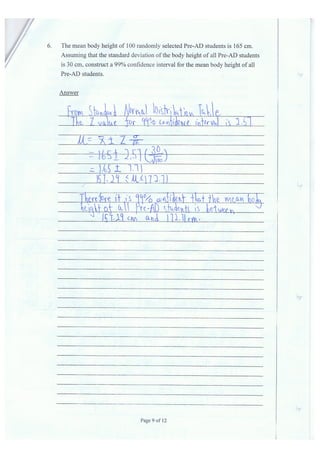 6. The mean body height of 100 randomly selected Pre-AD students is 165 cm.
Assuming that the standard deviation of the body height of all Pre-AD students
is 30 cm, construct a 99% confidence interval for the mean body height of all
Pre-AD students.
Answer
From Standard Normal Distribution Table
The Z value for 99% confidence interval is 2.57
μ = x̄ ± Z σ/√n
= 165 ± 2.57 (30/√100)
= 165 ± 7.71
157.29 ≤ μ ≤ 172.71
Therefore it is 99% confident that the mean body
height of all Pre-AD students is between
157.29 cm and 172.71cm.
Page 9 of 12